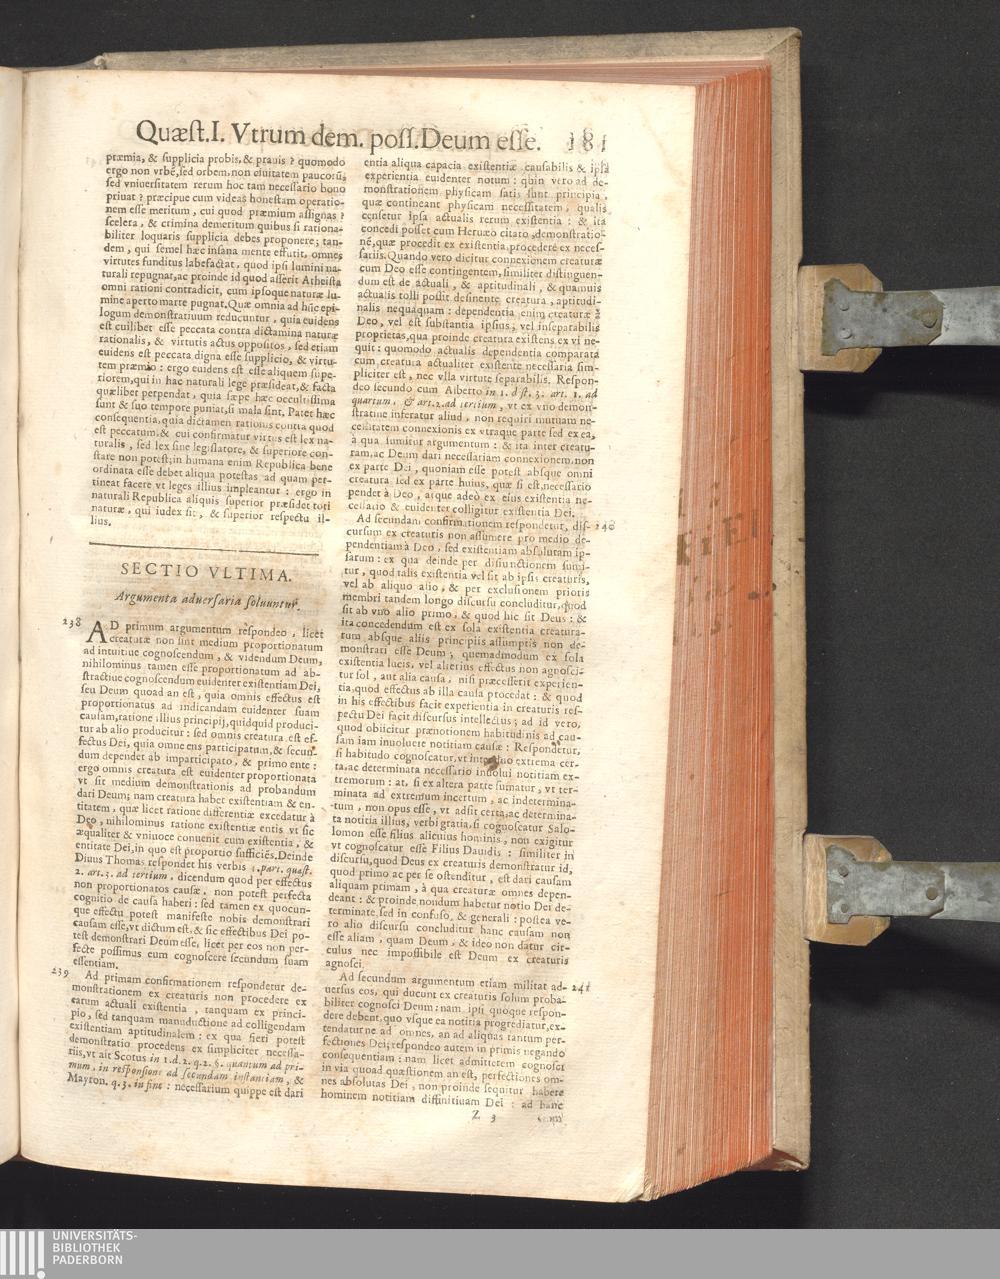 Quæſt.I. Vtrum dem. poſſ.Deum eſſe. 181
præmia, & ſupplicia probis, & prauis ? quomodo
ergo non vrbẽ,ſed orbem,non ciuitatem paucorũ,
ſed vniuerſitatem rerum hoc tam neceſſario bono
priuat ? præcipue cum videas honeſtam operatio-
nem eſſe meritum , cui quod præmium aſſignas ?
ſcelera , & crimina demeritum quibus ſi rationa-
biliter loquaris ſupplicia debes proponere; tan-
dem , qui ſemel hæc inſana mente effutit, omnes
virtutes funditus labefactat, quod ipſi lumini na-
turali repugnat,ac proinde id quod aſſerit Atheiſta
omni rationi contradicit, cum ipſoque naturæ lu-
mine aperto marte pugnat.Quæ omnia ad hũc epi-
logum demonſtratiuum reducuntur , quia euidens
eſt cuilibet eſſe peccata contra dictamina naturæ
rationalis, & virtutis actus oppoſitos , ſed etiam
euidens eſt peccata digna eſſe ſupplicio, & virtu-
tem præmio : ergo euidens eſt eſſe aliquem ſupe-
riorem,qui in hac naturali lege præſideat,& facta
quælibet perpendat , quia ſæpe hæc occultiſſima
ſunt & ſuo tempore puniat,ſi mala ſint. Patet hæc
conſequentia,quia dictamen rationis contra quod
eſt peccatum,& cui confirmatur virtus eſt lex na-
turalis , ſed lex ſine legiſlatore, & ſuperiore con-
ſtare non poteſt;in humana enim Republica bene
ordinata eſſe debet aliqua poteſtas ad quam per-
tineat facere vt leges illius impleantur : ergo in
naturali Republica aliquis ſuperior præſidet toti
naturæ , qui iudex ſit , & ſuperior reſpectu il-
lius.
SECTIO VLTIMA.
Argumenta aduerſaria ſoluuntur.
238 AD primum argumentum reſpondeo , licet
creaturæ non ſint medium proportionatum
ad intuitiue cognoſcendum , & videndum Deum,
nihilominus tamen eſſe proportionatum ad ab-
ſtractiue cognoſcendum euidenter exiſtentiam Dei,
ſeu Deum quoad an eſt , quia omnis effectus eſt
proportionatus ad indicandam euidenter ſuam
cauſam,ratione illius principij,quidquid produci-
tur ab alio producitur : ſed omnis creatura eſt ef-
fectus Dei, quia omne ens participatum,& ſecun-
dum dependet ab imparticipato, & primo ente :
ergo omnis creatura eſt euidenter proportionata
vt ſit medium demonſtrationis ad probandum
dari Deum; nam creatura habet exiſtentiam & en-
titatem , quæ licet ratione differentiæ excedatur à
Deo , nihilominus ratione exiſtentiæ entis vt ſic
æqualiter & vniuoce conuenit cum exiſtentia , &
entitate Dei,in quo eſt proportio ſufficiẽs.Deinde
Diuus Thomas reſpondet his verbis 1.part. quæſt.
2. art.3. ad tertium , dicendum quod per effectus
non proportionatos cauſæ, non poteſt perfecta
cognitio de cauſa haberi : ſed tamen ex quocun-
que effectu poteſt manifeſte nobis demonſtrari
cauſam eſſe,vt dictum eſt,& ſic effectibus Dei po-
teſt demonſtrari Deum eſſe, licet per eos non per-
fecte poſſimus eum cognoſcere ſecundum ſuam
eſſentiam.
239 Ad primam confirmationem reſpondetur de-
monſtrationem ex creaturis non procedere ex
earum actuali exiſtentia , tanquam ex princi-
pio, ſed tanquam manuductione ad colligendam
exiſtentiam aptitudinalem : ex qua fieri poteſt
demonſtratio procedens ex ſimpliciter neceſſa-
riis,vt ait Scotus in 1.d.2.q.2.§. quantum ad pri-
mum, in reſponſione ad ſecundam inſtantiam , &
Mayron. q.3. in fine : neceſſarium quippe eſt dari
entia aliqua capacia exiſtentiæ cauſabilis & ipſa
experientia euidenter notum : quin vero ad de-
monſtrationem phyſicam ſatis ſunt principia ,
quæ contineant phyſicam neceſſitatem , qualis
cenſetur ipſa actualis rerum exiſtentia : & ita
concedi poſſet cum Heruæo citato ,demonſtratio-
nẽ,quæ procedit ex exiſtentia,procedere ex neceſ-
ſariis.Quando vero dicitur connexionem creaturæ
cum Deo eſſe contingentem,ſimiliter diſtinguen-
dum eſt de actuali , & aptitudinali , & quamuis
actualis tolli poſſit deſinente creatura , aptitudi-
nalis nequaquam : dependentia enim creaturæ à
Deo , vel eſt ſubſtantia ipſius , vel inſeparabilis
proprietas,qua proinde creatura exiſtens ex vi ne-
quit : quomodo actualis dependentia comparata
cum creatura actualiter exiſtente neceſſaria ſim-
pliciter eſt , nec vlla virtute ſeparabilis. Reſpon-
deo ſecundo cum Alberto in 1. diſt. 3. art. 1. ad
quartum, & art.2.ad tertium , vt ex vno demon-
ſtratiue inferatur aliud , non requiri mutuam ne-
ceſſitatem connexionis ex vtraque parte ſed ex ea,
à qua ſumitur argumentum : & ita inter creatu-
ram,ac Deum dari neceſſariam connexionem,non
ex parte Dei , quoniam eſſe poteſt abſque omni
creatura ſed ex parte huius, quæ ſi eſt,neceſſario
pendet à Deo , atque adeò ex eius exiſtentia ne-
ceſſario & euidenter colligitur exiſtentia Dei.
Ad ſecundam confirmationem reſpondetur, diſ- 240
curſum ex creaturis non aſſumere pro medio de-
pendentiam à Deo , ſed exiſtentiam abſolutam ip-
ſarum : ex qua deinde per diſiunctionem ſumi-
tur , quod talis exiſtentia vel ſit ab ipſis creaturis,
vel ab aliquo alio , & per excluſionem prioris
membri tandem longo diſcurſu concluditur, quod
ſit ab vno alio primo, & quod hic ſit Deus : &
ita concedendum eſt ex ſola exiſtentia creatura-
rum abſque aliis principiis aſſumptis non de-
monſtrari eſſe Deum ; quemadmodum ex ſola
exiſtentia lucis, vel alterius effectus non agnoſci-
tur ſol , aut alia cauſa , niſi præceſſerit experien-
tia,quod effectus ab illa cauſa procedat : & quod
in his effectibus facit experientia in creaturis reſ-
pectu Dei facit diſcurſus intellectus ; ad id vero,
quod obiicitur prænotionem habitudinis ad cau-
ſam iam inuoluere notitiam cauſæ : Reſpondetur,
ſi habitudo cognoſcatur,vt inter duo extrema cer-
ta,ac determinata neceſſario inuolui notitiam ex-
tremorum : at, ſi ex altera parte ſumatur , vt ter-
minata ad extremum incertum , ac indetermina-
tum , non opus eſſe , vt adſit certa,ac determina-
ta notitia illius, verbi gratia,ſi cognoſcatur Salo-
lomon eſſe filius alicuius hominis , non exigitur
vt cognoſcatur eſſe Filius Dauidis : ſimiliter in
diſcurſu,quod Deus ex creaturis demonſtratur id,
quod primo ac per ſe oſtenditur , eſt dari cauſam
aliquam primam , à qua creaturæ omnes depen-
deant : & proinde nondum habetur notio Dei de-
terminate,ſed in confuſo, & generali : poſtea ve-
ro alio diſcurſu concluditur hanc cauſam non
eſſe aliam , quam Deum , & ideo non datur cir-
culus nec impoſſibile eſt Deum ex creaturis
agnoſci.
Ad ſecundum argumentum etiam militat ad- 241
uerſus eos, qui ducunt ex creaturis ſolum proba-
biliter cognoſci Deum ; nam ipſi quoque reſpon-
dere debent,quo vſque ea notitia progrediatur,ex-
tendaturne ad omnes, an ad aliquas tantum per-
fectiones Dei; reſpondeo autem in primis negando
conſequentiam : nam licet admitterem cognoſci
in via quoad quæſtionem an eſt, perfectiones om-
nes abſolutas Dei , non proinde ſequitur habere
hominem notitiam diffinitiuam Dei : ad hanc
Z 3
UNIVERSITÄTS-
BIBLIOTHEK
PADERBORN